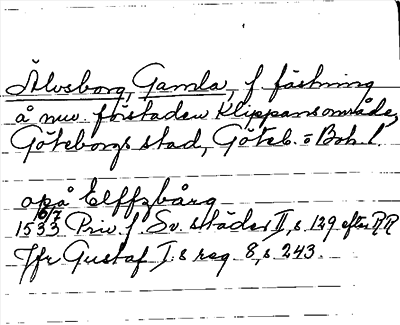 Älvsborg, Gamla, f. fästning
å nuv. förstaden Klippans område,
Göteborgs stad, Göteb. o Boh. l.
opå Elffzbårg
16/7
1533 Priv. f. Sv. städer II, s. 129 efter RR
Jfr Gustaf I:s reg. 8, s. 243.